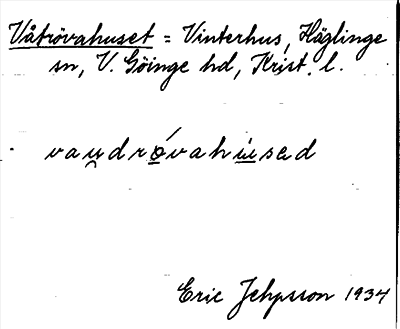 Våtrövahuset = Vinterhus, Häglinge
sn, V. Göinge hd, Krist. l.
vau̯drǫ́vahu̲sed
Eric Jepsson 1934